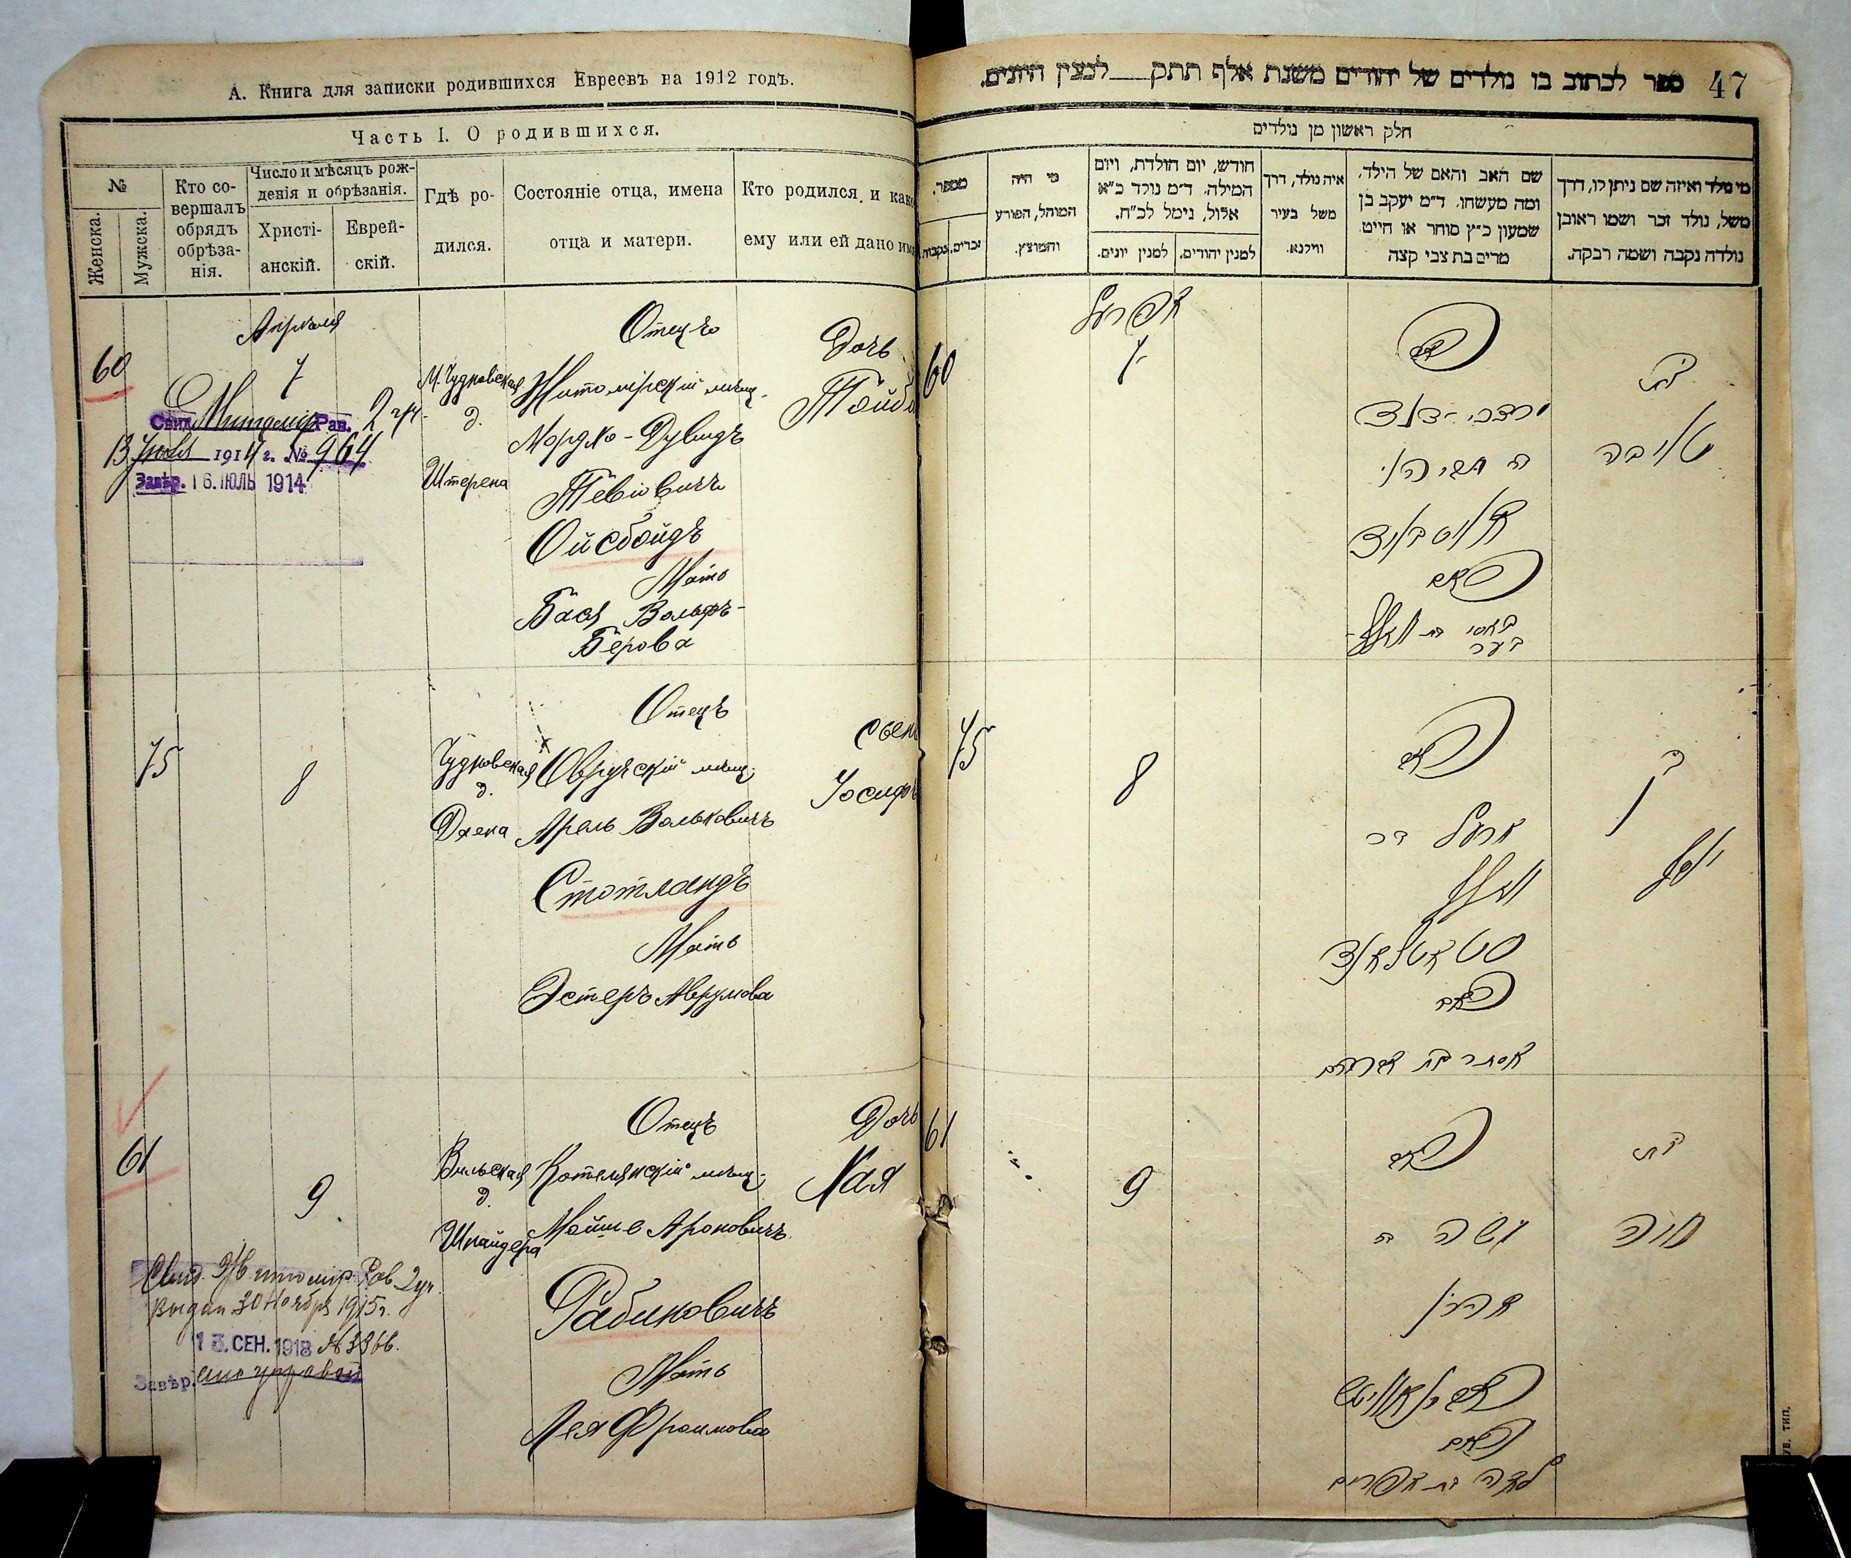 А. Книга для записки родившихся Евреевъ на 1912 годъ.
Часть I. О родившихся.
№
Женска.
Мужска.
Кто со-
вершалъ
обрядъ
обрѣза-
нія.
Число и мѣсяцъ рож-
денія и обрѣзанія.
Христі-
анскій.
Еврей-
скій.
Гдѣ ро-
дился.
Состояніе отца, имена
отца и матери.
Кто родился и
ему или ей дано
Апрѣля
60
7
М. Чудновская
д.
Штерена
Отецъ
Житомірскій мѣщ.
Мордко-Дувидъ
Тевіовичъ
Ойсбойдъ
Мать
Бася Вольфъ-
Берова
Дочь
Тойба
Свид. Житомір. Рав. 2 уч.
13 Іюля 1914 г. № 964
Завѣр. 16. ІЮЛЬ 1914
75
8
Чудновская
д.
Отецъ
Овручскій мѣщ.
Арель Вольковичъ
Стотландъ
Мать
Эстеръ Аврумова
Сынъ
Іосифъ
61
9
Вильская
д.
Шнайдера
Отецъ
Котелянскій мѣщ.
Мойше Ароновичъ
Рабиновичъ
Мать
Лея Фроимова
Дочь
Хая
Свид. Житомір. Рав. 2 уч.
Выдан 30 Ноября 1915 г.
13. СЕН. 1918 №3366.
Завѣр.
ספר לכתוב בו נולדים של יהודים משנת אלף תתק למנין היונים. 47
חלק ראשון מן נולדים
מי נולד ואיזה שם ניתן לו, דרך
משל, נולד זכר ושמו ראובן
נולדה נקבה ושמה רבקה.
שם האב והאם של הילד,
ומה מעשהו, ד״מ יעקב בן
שמעון כ״ץ סוחר או חייט
מרים בת צבי קצה
איה נולד, דרך
משל בעיר
ווילנא.
חודש, יום הולדת, ויום
המילה, ד״מ נולד כ״א
אלול, נימל לכ״ח.
למנין יהודים.
למנין יונים.
מי היה
המוהל, הפורע
והמוצץ.
מספר.
זכרים.
נקבות
אפריל
60
7
האב
מרדכי-דוד
אויסבויד
האם
באסי בת וואלף-
בער
בת
טויבה
75
8
האב
ארעל בר
וואלף
סטאטלאנד
האם
אסתר בת אברהם
בן
יוסף
61
9
האב
משה ב
אהרן
ראבינאוויטש
האם
לאה בת אפרים
בת
חיה